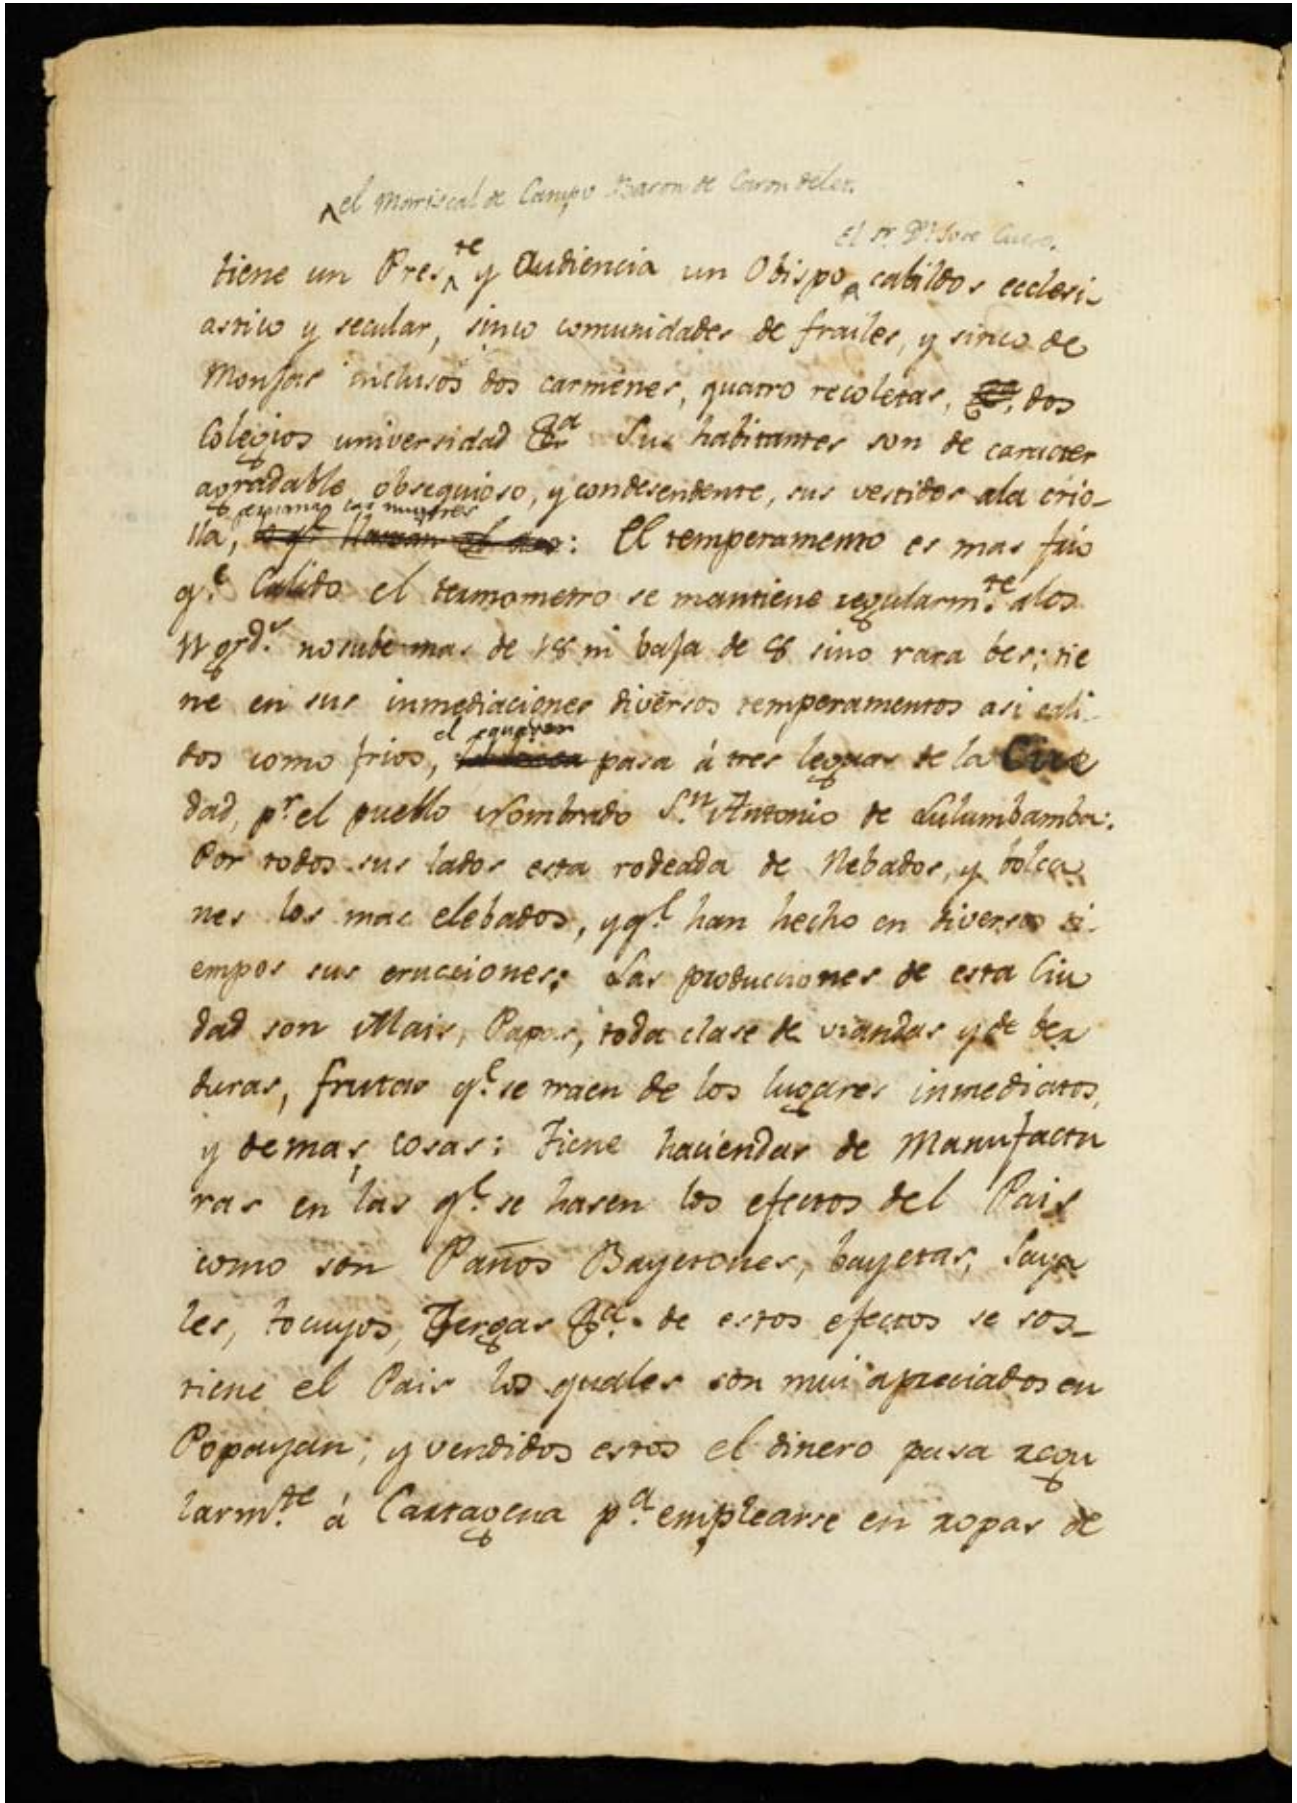 el Mariscal de Campo Baron de Carondelet.
El Sr. Dn. Jose Cuero.
tiene un Pres.te y Audiencia un Obispo cabildos ecclesi-
astico y secular, sinco comunidades de frailes, y sinco de
Monjas inclusos dos carmenes, quatro recoletas, dos
Colegios universidad &a Sus habitantes son de caracter
agradable, obsequioso, y condesendente, sus vestidos ala crio-
las mugeres
lla, : El temperamento es mas frio
q.e Calido el termometro se mantiene regularm.te alos
11 grd.s no sube mas de 18 ni baja de 8 sino rara bes; tie
ne en sus inmediaciones diversos temperamentos asi cali-
el equator
dos como frios, pasa á tres leguas de la Ciu
dad, pr el pueblo Nombrado S.n Antonio de Lulumbamba:
Por todos sus lados esta rodeada de Nebados, y bolca
nes los mas elebados, y q.e han hecho en diversos ti-
empos sus erucciones: Las producciones de esta Ciu
dad son Mais, Papas, toda clase de viandas y de ber
duras, frutas q.e se traen de los lugares inmediatos,
y demas cosas: Tiene haciendas de Manufactu
ras en las q.e se hasen los efectos del Pais
como son Paños Bayetones, bayetas, Saya
les, tocuyos, Jergas &a. de estos efectos se sos-
tiene el Pais los quales son mui apreciados en
Popayan; y vendidos estos el dinero pasa regu
larm.te á Cartagena p.a emplearse en ropas de